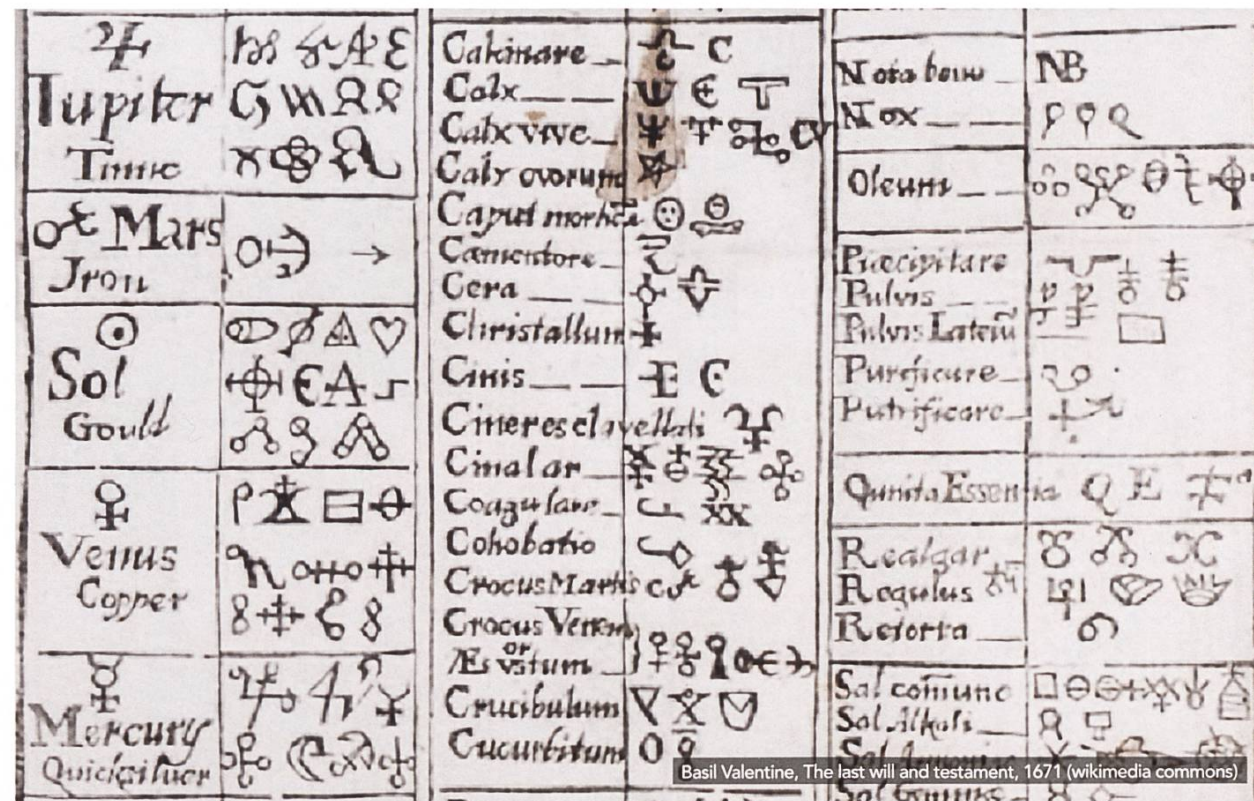 Jupiter
Tinne
Mars
Iron
Sol
Gould
Venus
Copper
Mercury
Quicksiluer
Calcinare
C
Calx
Calx vive
Calx ovorum
Caput
Cæmentare
Cera
Christallum
Cinis
Cineres clavellati
Coagulare
Cohobatio
Crocus Martis
Crocus Veneris
or
Æs vstum
Crucibulum
Cucurbitum
Nota bene NB
Nox
Oleum
Præcipitare
Pulvis
Pulvis Laterū
Purificare
Putrificare
Essentia Q E
Realgar
Regulus
Retorta
Sal comune
Sal Alkali
Basil Valentine, The last will and testament, 1671 (wikimedia commons)